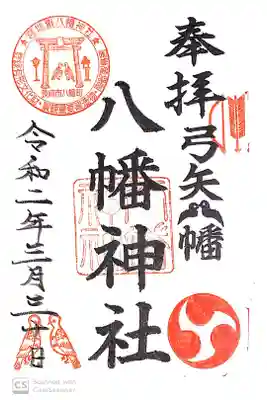 奉拝 弓矢八幡
八幡神社
令和二年三月三十日
長崎市八幡町
CS Scanned with
CamScanner